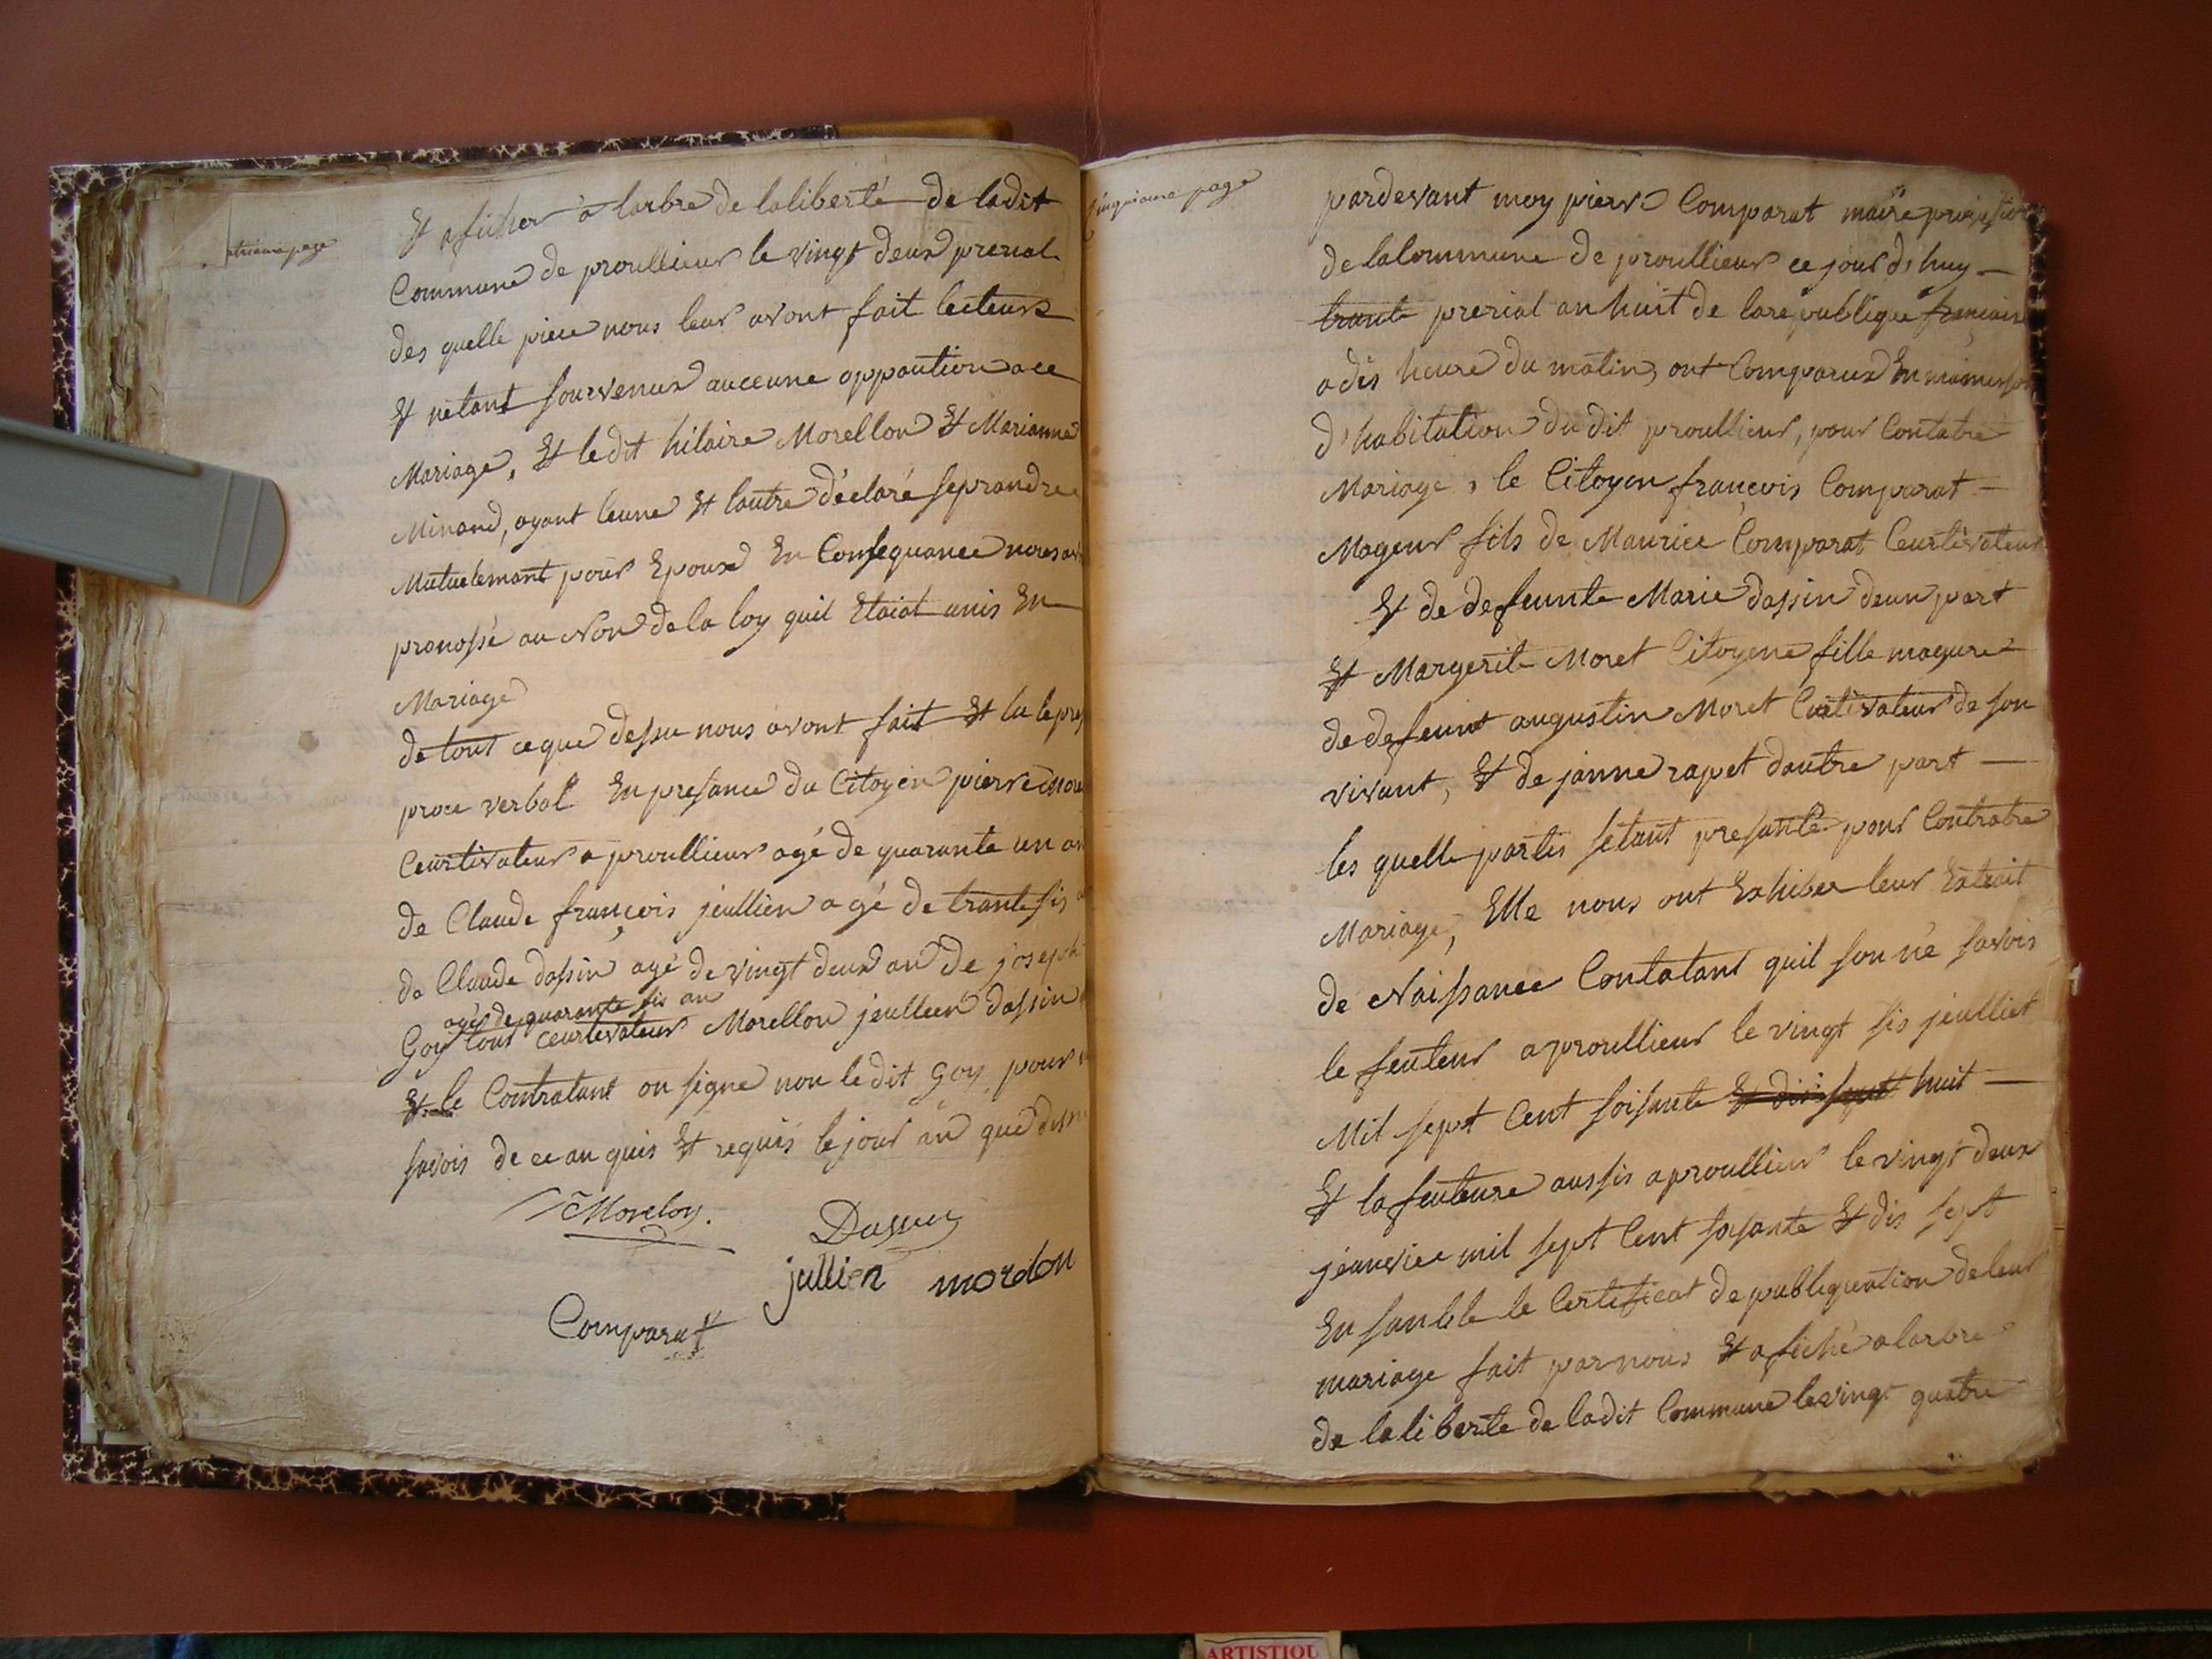 atrieme page
Et aficher a larbre de la liberté de ladit
Commune de proullieur le vingt deux prerial
des quelle piece nous leur avont fait lecteure
Et netant sourvenus auceune oppoution a ce
Mariage, Et le dit hilaire Morellon Et Marianne
Minand, ayant leune Et lautre déclaré seprandre
Mutuelemant pour Epoux En Consequance nous av
pronossé au Non de la loy quil Etaiat unis En
Mariage
de tout ce que dessu nous avont fait Et lu le pres
proce verbal En presance du Citoyen pierre More
Ceurtivateur a proullieur agé de quarante un an
de Claude françois jeullien agé de trante sis
de Claude dassin agé de vingt deux an de joseph
agé de quarante sis an
Goy tous ceurtivateur Morellon jeullien dassin
Et le Contratant on signe non le dit Goy pour
savois de ce anquis Et requis le jour an que dessu
Morelon.
Dassin
jullien mordon
Comparat
inquieme page
pardevant moy pierre Comparat maire provisoir
de la Commune de proullieur ce jour d'huy
trante prerial an huit de la republique francais
a dis heure du matin, ont Comparux En maison
d'habitation du dit proullieur, pour Contatre
Mariage, le Citoyen françois Comparat
Mageur fils de Maurice Comparat Ceurtivateur
Et de defeunte Marie dassin deun part
Et Margerite Moret Citoyene fille mageure
de defeunt augustin Moret Curtivateur de son
vivant, Et de janne rapet dautre part
les quelle partis setant presante pour Contratre
Mariage, Elle nous ont Exhiber leur Extrait
de Naissance Contatant quil son né savois
le feuteur a proullieur le vingt sis jeulliet
Mil sept Cent soisante Et dis sept huit
Et la feuteure aussis a proullieur le vingt deux
jeanvier mil sept Cent soisante Et dis sept
En sanble le Certificat de publiquation de leur
mariage fait par nous Et afiché a larbre
de la liberte de ladit Commune le vingt quatre
ARTISTIQU